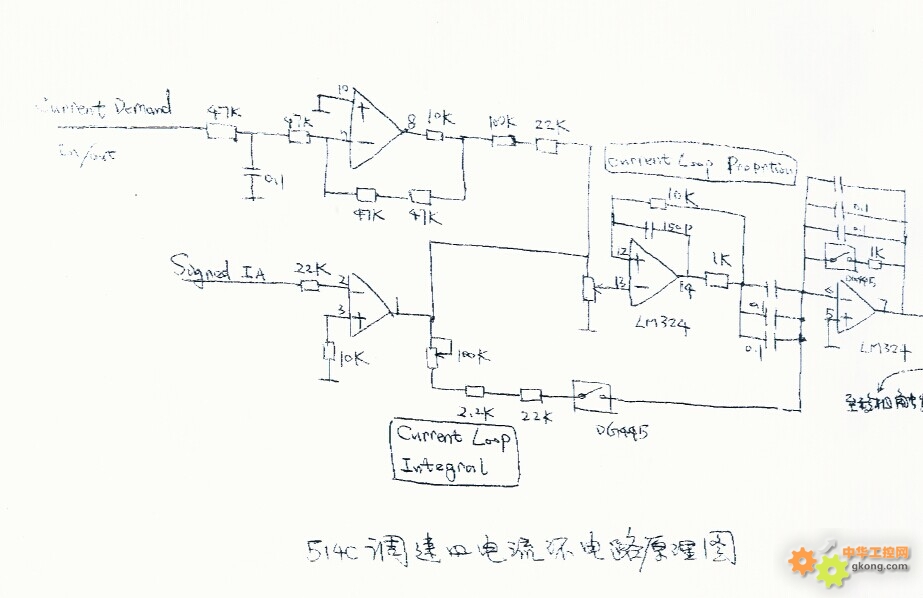 Current Demand
In/out
47K
47K
0.1
10
9
8
10K
100K
22K
47K
47K
Current Loop Proprtion
10K
150P
12
13
14
1K
LM324
Signed IA
22K
2
3
1
10K
100K
2.2K
22K
DG445
Current Loop
Integral
0.1
0.1
0.1
0.1
1K
DG445
6
5
7
LM324
514C调速口电流环电路原理图
中华工控网
gkong.com